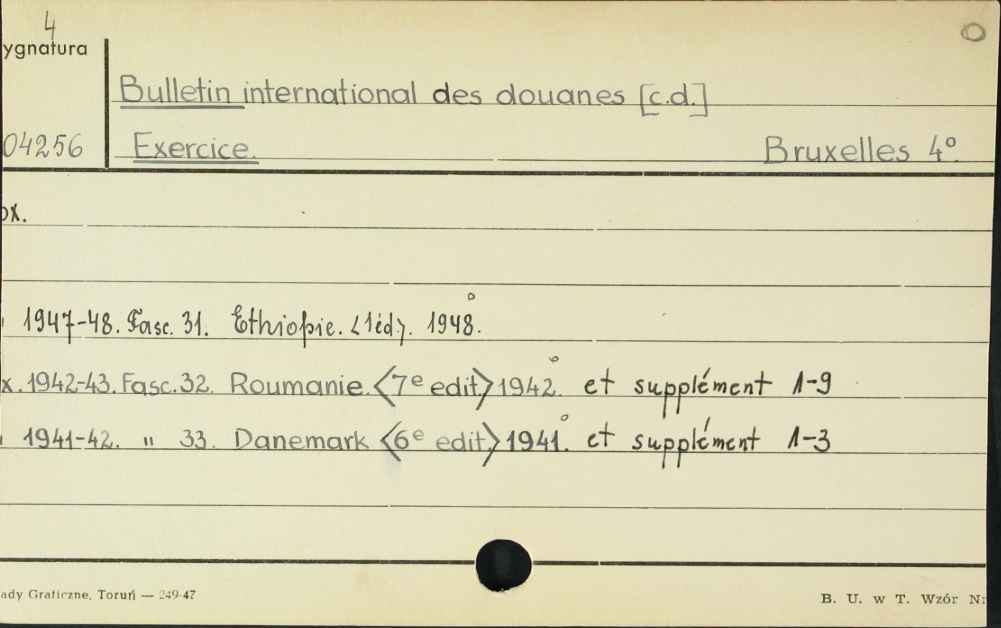 4
ygnatura
Bulletin international des douanes [c.d.]
04256 Exercice. Bruxelles 4°.
ox.
1947-48. Fasc. 31. Ethiopie. <1éd>. 1948.
x. 1942-43. Fasc. 32. Roumanie. <7e edit> 1942. et supplément 1-9
1941-42. " 33. Danemark <6e edit> 1941. et supplément 1-3
ady Graficzne, Toruń — 249-47
B. U. w T. Wzór Nr